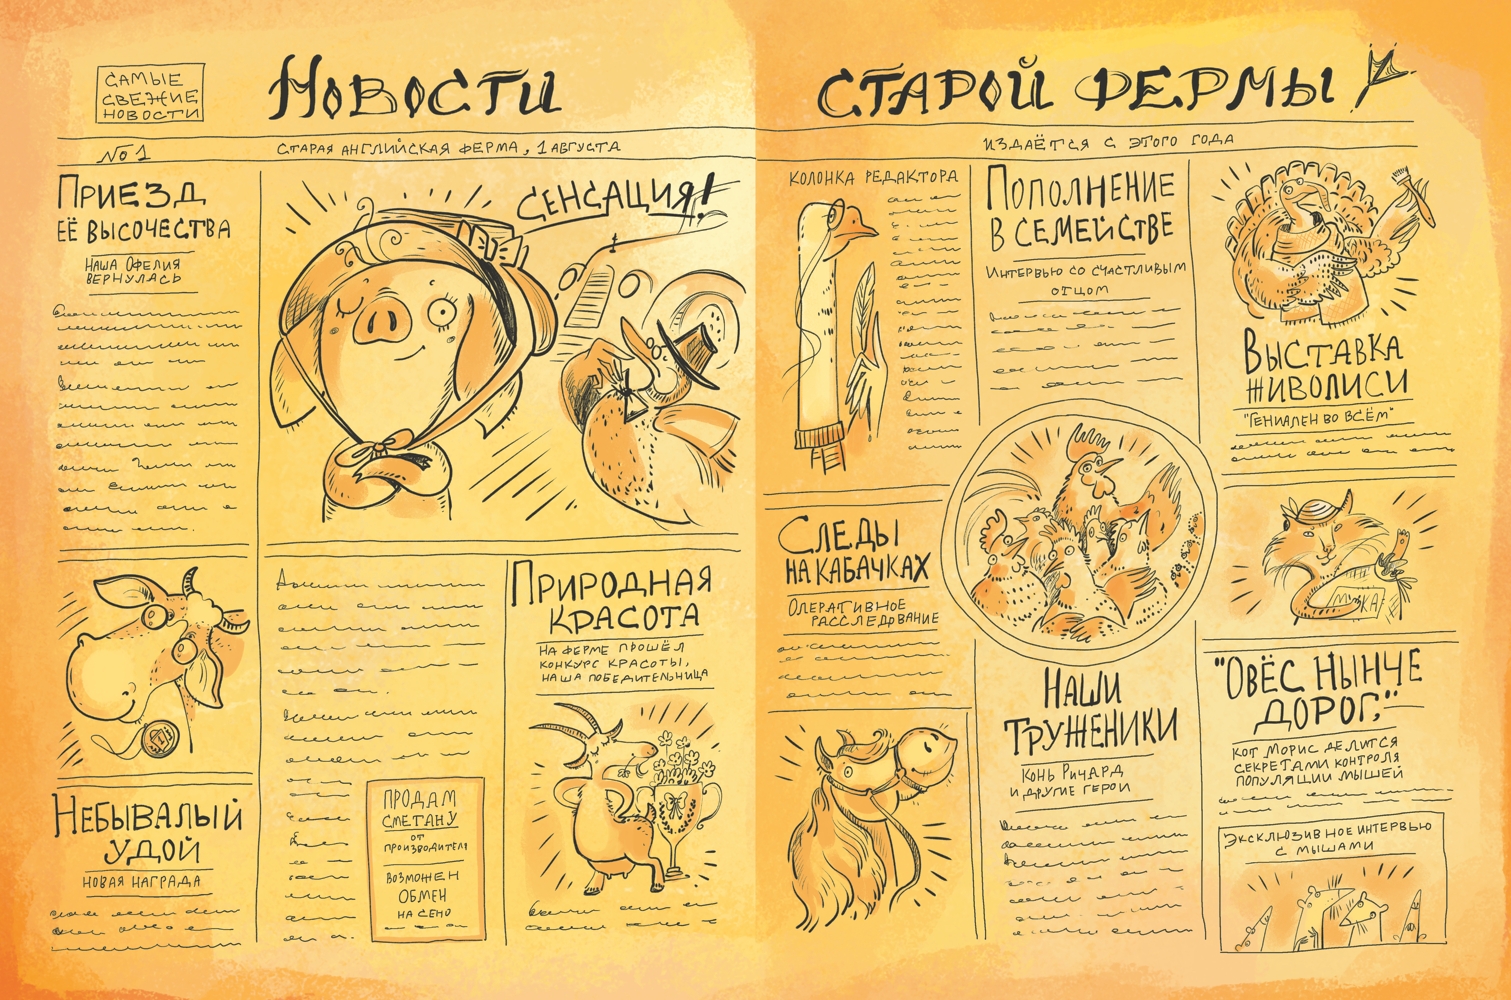 САМЫЕ
СВЕЖИЕ
НОВОСТИ
НОВОСТИ
СТАРОЙ ФЕРМЫ
№ 1
СТАРАЯ АНГЛИЙСКАЯ ФЕРМА, 1 АВГУСТА
ИЗДАЁТСЯ С ЭТОГО ГОДА
ПРИЕЗД
ЕЁ ВЫСОЧЕСТВА
НАША ОФЕЛИЯ
ВЕРНУЛАСЬ
СЕНСАЦИЯ!
НЕБЫВАЛЫЙ
УДОЙ
НОВАЯ НАГРАДА
ПРОДАМ
СМЕТАНУ
ОТ
ПРОИЗВОДИТЕЛЯ
ВОЗМОЖЕН
ОБМЕН
НА СЕНО
ПРИРОДНАЯ
КРАСОТА
НА ФЕРМЕ ПРОШЁЛ
КОНКУРС КРАСОТЫ,
НАША ПОБЕДИТЕЛЬНИЦА
КОЛОНКА РЕДАКТОРА
СЛЕДЫ
НА КАБАЧКАХ
ОПЕРАТИВНОЕ
РАССЛЕДОВАНИЕ
ПОПОЛНЕНИЕ
В СЕМЕЙСТВЕ
ИНТЕРВЬЮ СО СЧАСТЛИВЫМ
ОТЦОМ
НАШИ
ТРУЖЕНИКИ
КОНЬ РИЧАРД
И ДРУГИЕ ГЕРОИ
ВЫСТАВКА
ЖИВОПИСИ
"ГЕНИАЛЕН ВО ВСЁМ"
МУЗЫКА
"ОВЁС НЫНЧЕ
ДОРОГ,"
КОТ МОРИС ДЕЛИТСЯ
СЕКРЕТАМИ КОНТРОЛЯ
ПОПУЛЯЦИИ МЫШЕЙ
ЭКСКЛЮЗИВНОЕ ИНТЕРВЬЮ
С МЫШАМИ